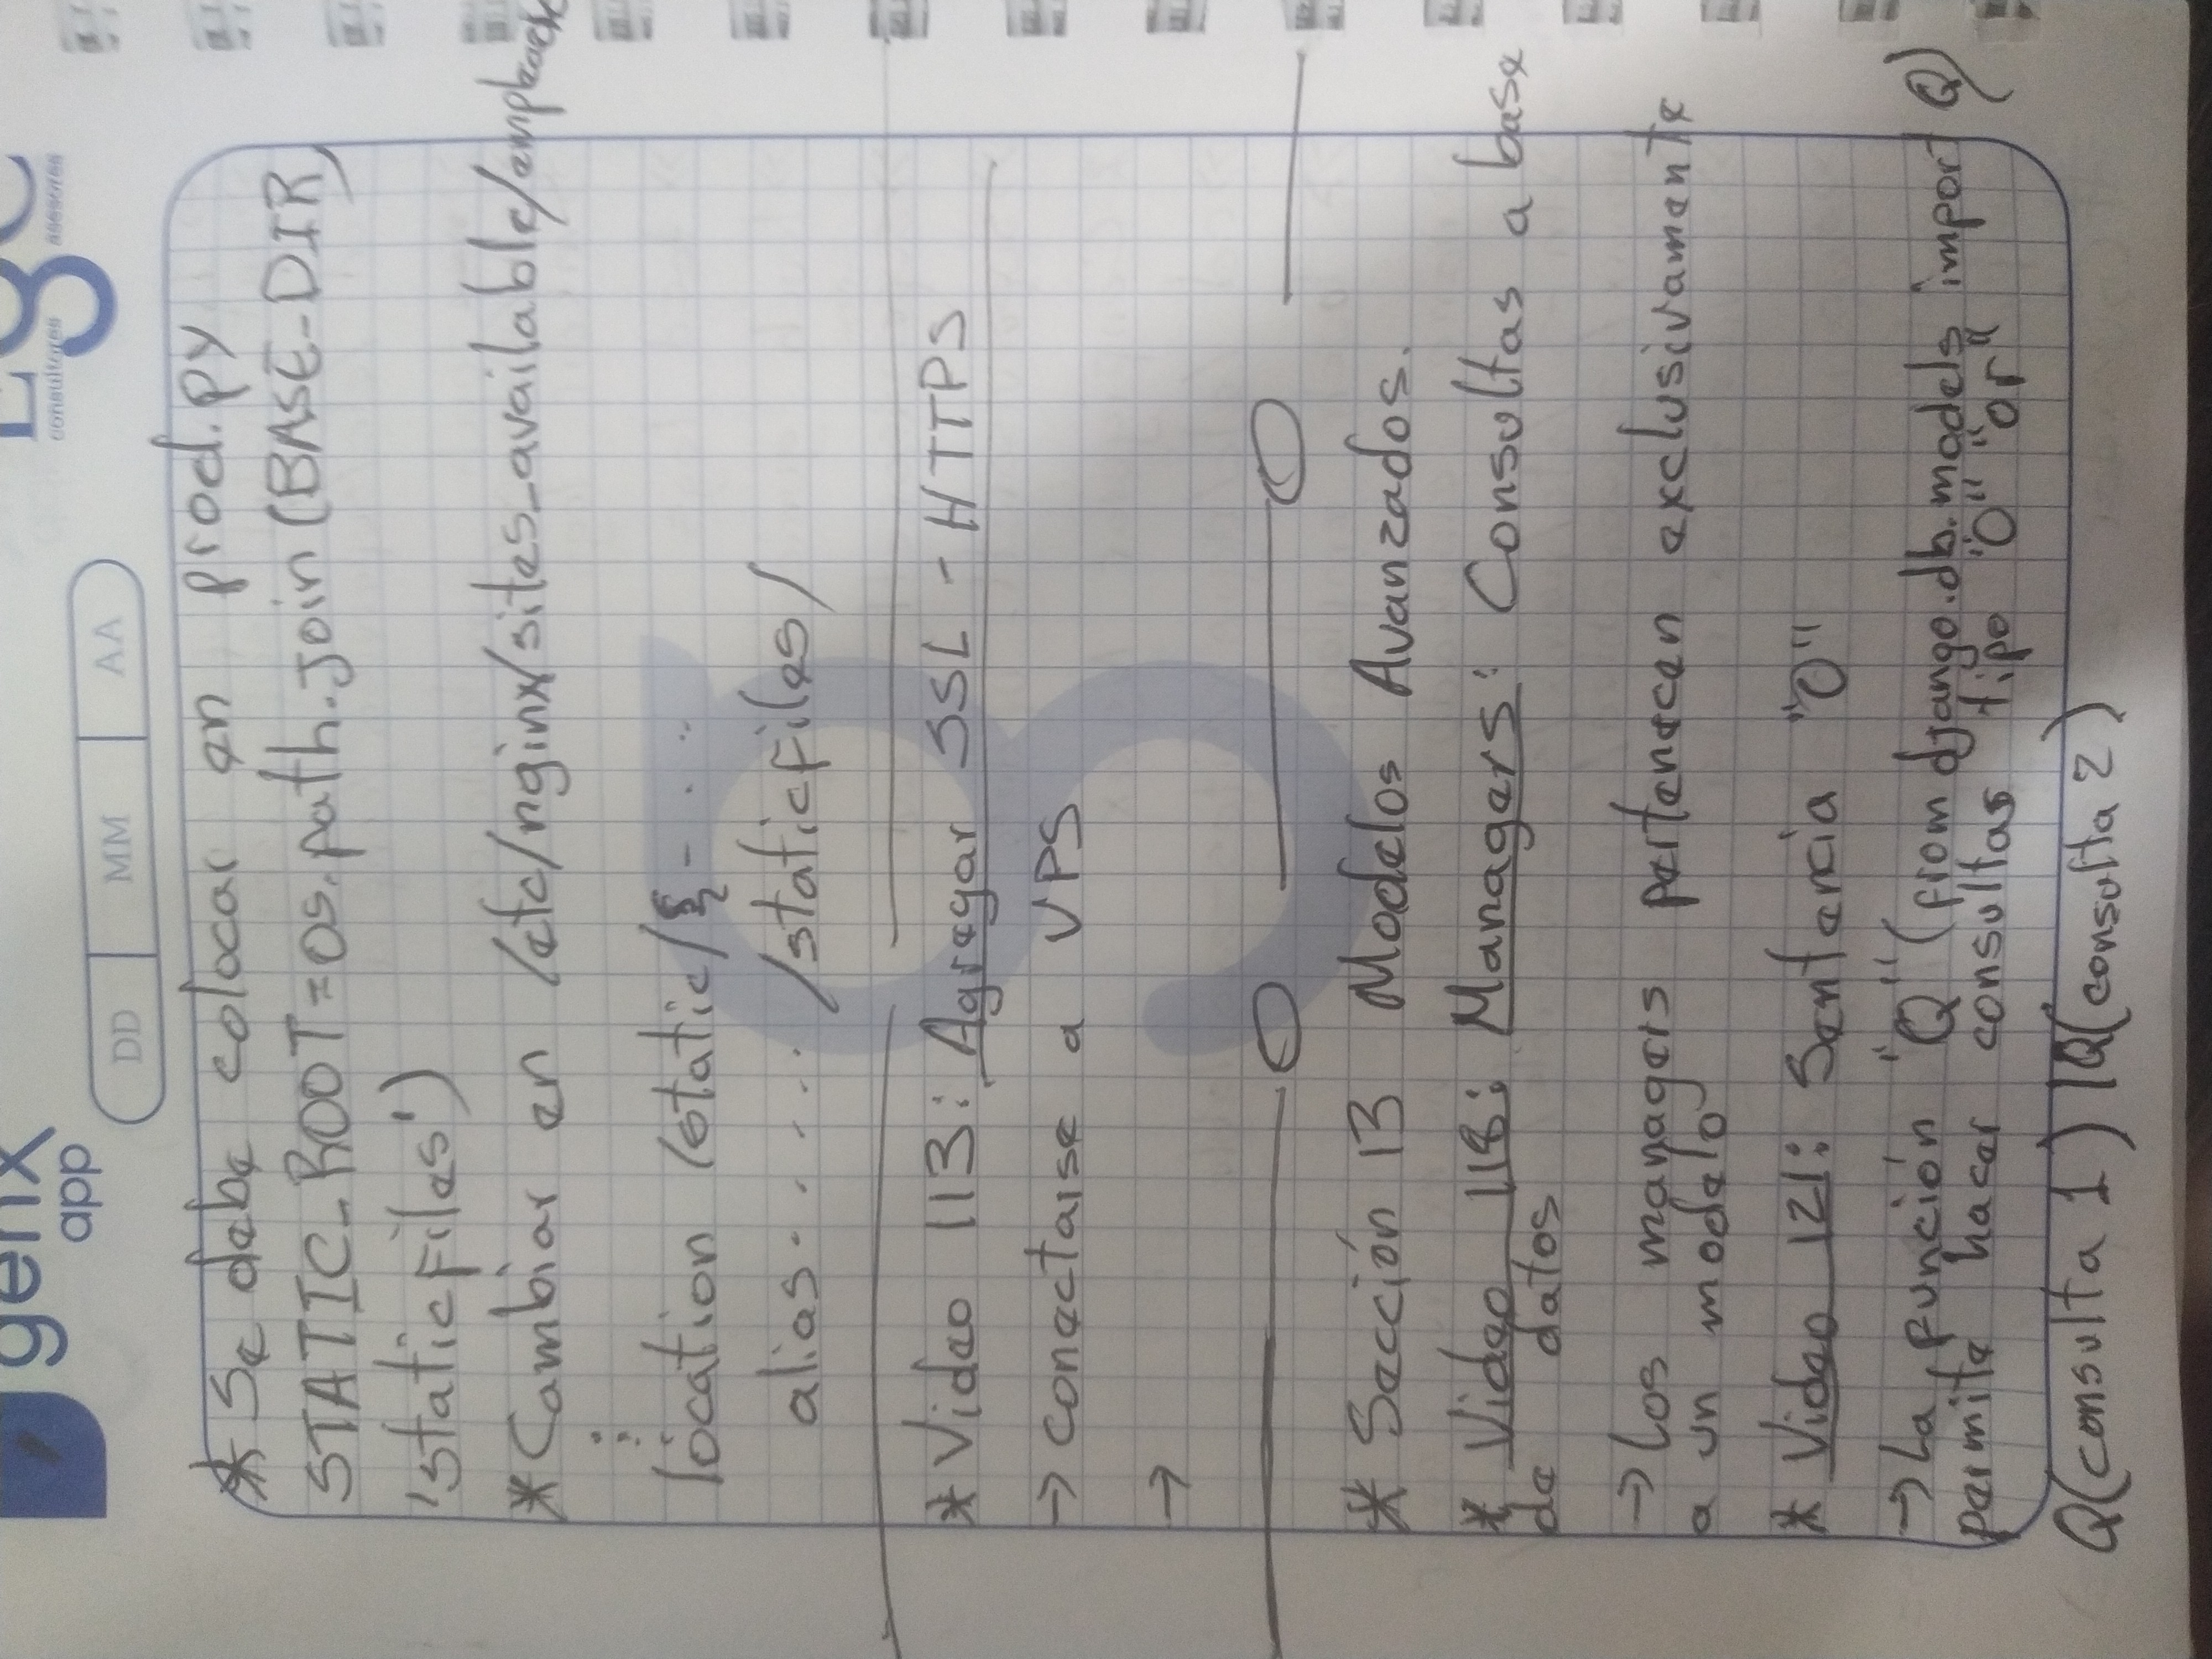 genx
app
EGC
consultores asesores
DD MM AA
* Se debe colocar en prod.py
STATIC_ROOT=os.path.join(BASE_DIR,
'staticfiles')
* Cambiar en /etc/nginx/sites_available/
location /static/{- . . .
alias . . . . . /staticfiles/
* Video 113: Agregar SSL - HTTPS
→ conectarse a VPS
→
* Sección 13 Modelos Avanzados.
* Video 118: Managers: Consultas a base
de datos
→ Los managers pertenecen exclusivamente
a un modelo
* Video 121: Sentencia "O"
→ La función "Q" (from django.db.models import Q)
permite hacer consultas tipo "O" "or"
Q(consulta 1) | Q(consulta 2)